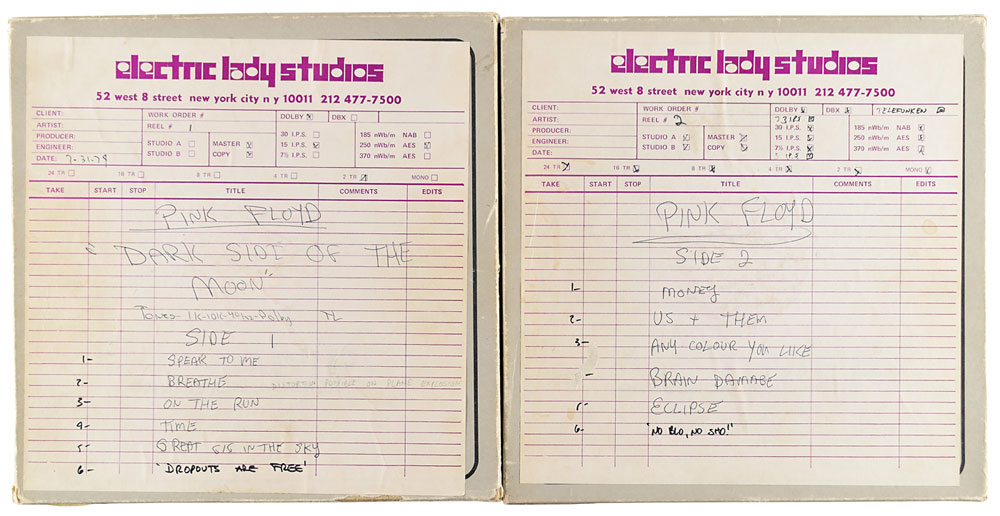 electric lady studios
52 west 8 street new york city n y 10011 212 477-7500
CLIENT:
ARTIST:
PRODUCER:
ENGINEER:
DATE: 7-31-79
WORK ORDER #
REEL # 1
STUDIO A
STUDIO B
MASTER
COPY
DOLBY
DBX
30 I.P.S.
15 I.P.S.
7½ I.P.S.
185 nWb/m NAB
250 nWb/m AES
370 nWb/m AES
24 TR 16 TR 8 TR 4 TR 2 TR MONO
TAKE START STOP TITLE COMMENTS EDITS
PINK FLOYD
"DARK SIDE OF THE
MOON"
Tones-1K-10K-40Hz-Dolby
SIDE 1
1- SPEAK TO ME
2- BREATHE ON PLANE EXPLOSION
3- ON THE RUN
4- TIME
5- GREAT GIG IN THE SKY
6- 'DROPOUTS ARE FREE'
electric lady studios
52 west 8 street new york city n y 10011 212 477-7500
CLIENT:
ARTIST:
PRODUCER:
ENGINEER:
DATE:
WORK ORDER #
REEL # 2
STUDIO A
STUDIO B
MASTER
COPY
DOLBY
DBX
TELEFUNKEN
30 I.P.S.
15 I.P.S.
7½ I.P.S.
185 nWb/m NAB
250 nWb/m AES
370 nWb/m AES
24 TR 16 TR 8 TR 4 TR 2 TR MONO
TAKE START STOP TITLE COMMENTS EDITS
PINK FLOYD
SIDE 2
1- MONEY
2- US + THEM
3- ANY COLOUR YOU LIKE
- BRAIN DAMAGE
5- ECLIPSE
6- "NO BLO, NO SHO!"